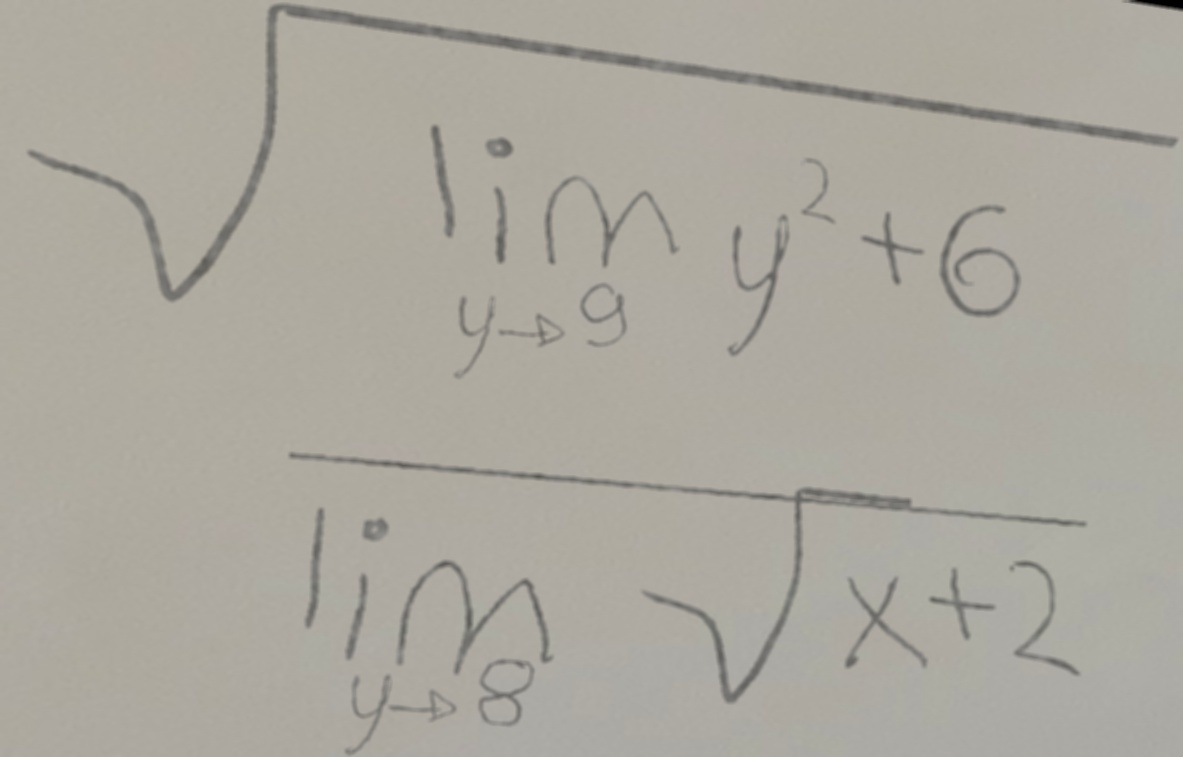 \sqrt{\frac{\lim_{y \to 9} y^2 + 6}{\lim_{y \to 8} \sqrt{x} + 2}}